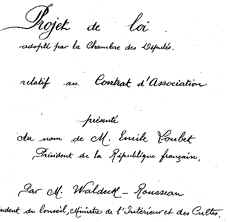 Projet de loi
adopté par la Chambre des Députés.
relatif au Contrat d'Association
présenté
au nom de M. Emile Loubet
Président de la République française,
Par M. Waldeck-Rousseau
ident du Conseil, Ministre de l'Intérieur et des Cultes.